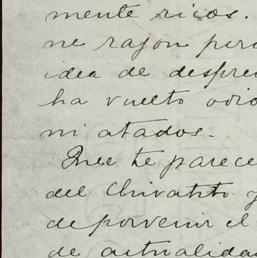 mente ricos.
ne rason per
idea de despre
ha vuelto odio
ni atados.
Que te parece
del Chivatito y
de porvenir el
de actualidad